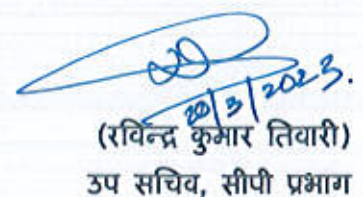 20/3/2023.
(रविन्द्र कुमार तिवारी)
उप सचिव, सीपी प्रभाग